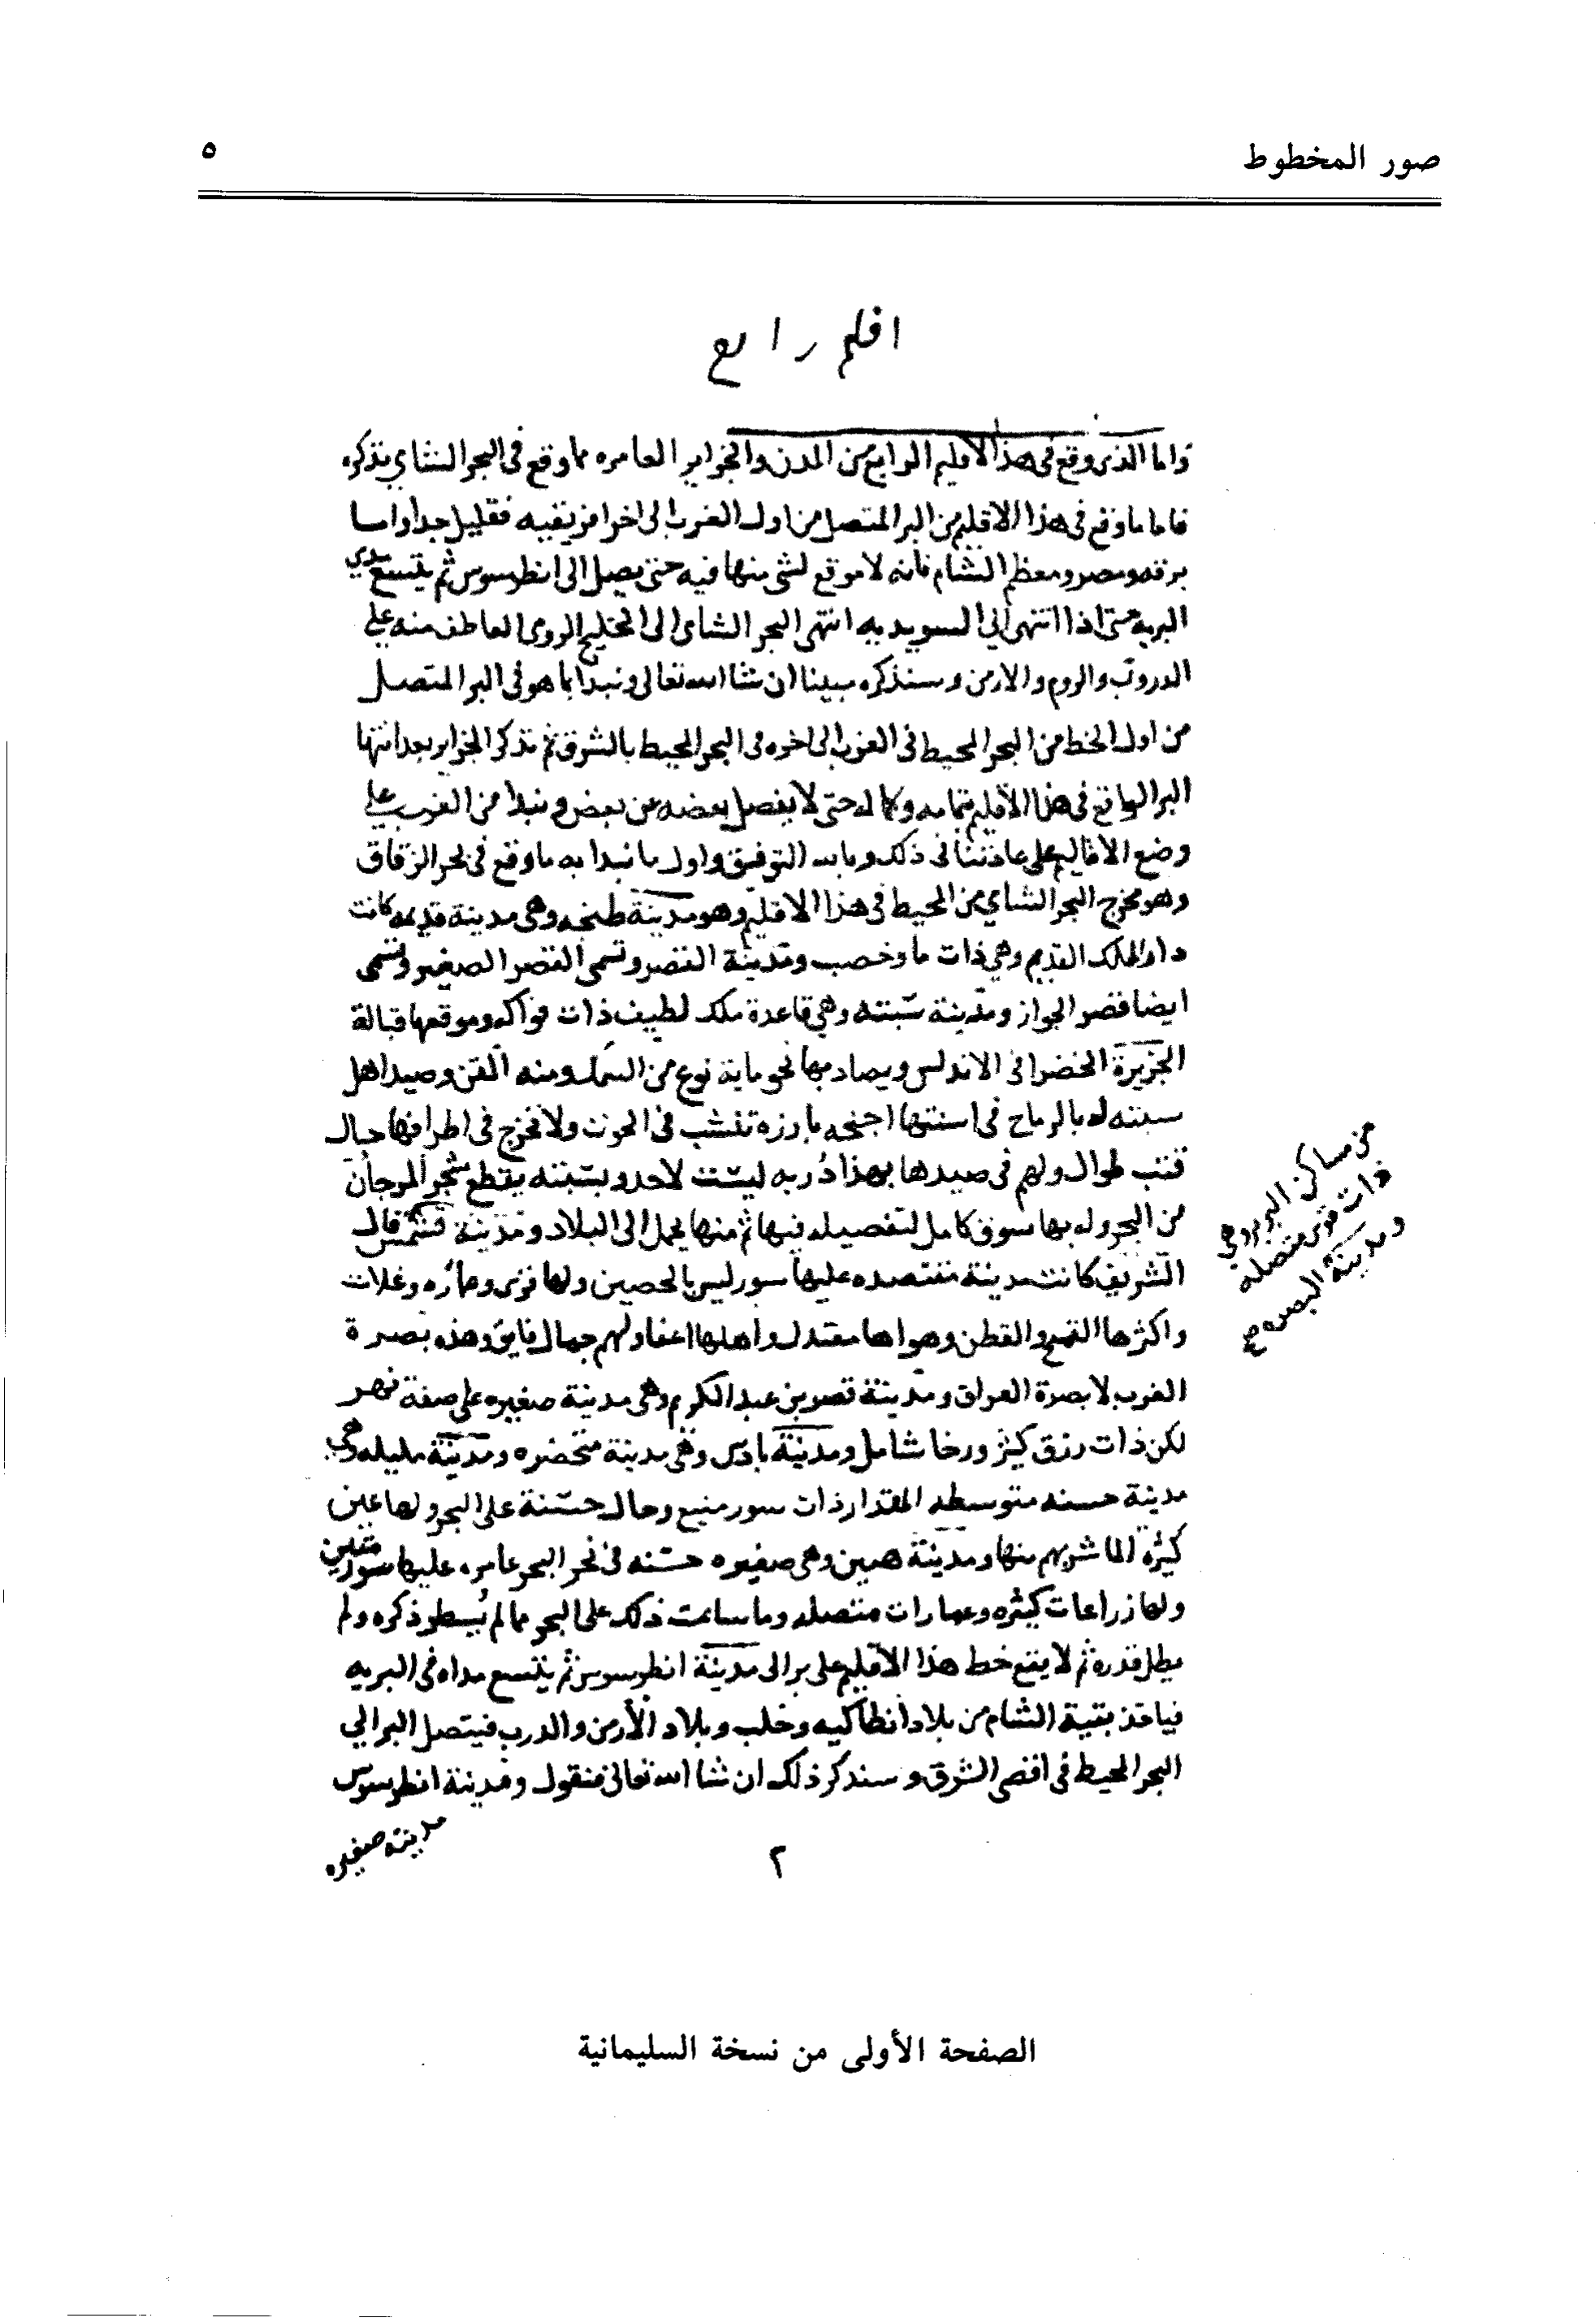 صور المخطوط
٥
اقلم رابع
واما الذى وقع فى هذا الاقليم الرابع من المدن والجزاير العامره مما وقع فى البحر الشاي نذكره
فاما ما وقع فى هذا الاقليم من البر المتصل من اول الغرب الى اخر افريقيه فقليل جدا واما
برقه ومصر ومعظم الشام فانه لا موقع لشى منها فيه حتى يصل الى انطرسوس ثم يتسع
البرية حتى اذا انتهى الى السويديه انتهى البحر الشاى الى الخليج الرومى العاطف منه على
الدروب والروم والارمن وسنذكره مبينا ان شا الله تعالى ونبدا بما هو فى البر المتصل
من اول الخط من البحر المحيط فى الغرب الى اخره فى البحر المحيط بالشرق ثم نذكر الجزاير بعد انتها
البر الواقع فى هذا الاقليم بتمامه وكماله حتى لا يفصل بعضه عن بعض ونبدا من الغرب على
وضع الاقاليم على عادتنا فى ذلك وبالله التوفيق واول ما نبدا به ما وقع فى بحر الزقاق
وهو مخرج البحر الشاي من المحيط فى هذا الاقليم وهو مدينة طنجه وهى مدينة قديمه كانت
دار الملك القديم وهي ذات ما وخصب ومدينة القصر وتسمى القصر الصغير وتسمى
ايضا قصر الجواز ومدينة سبته وهي قاعدة ملك لطيف ذات فواكه وموقعها قبالة
الجزيرة الخضرا فى الاندلس ويصاد بها نحو ماية نوع من السمك ومنه التن وصيد اهل
سبته له بالرماح فى اسنتها اجنحه بارزه تنشب فى الحوت ولا تخرج فى اطرافها حبال
قنب طوال ولهم فى صيدها بهذا دربه ليست لاحد وبسبته يقطع شجر المرجان
من البحر وله بها سوق كامل لتفصيله فيها ثم منها يحمل الى البلاد ومدينة تشمس قال
الشريف كانت مدينة مقتصده عليها سور ليس بالحصين ولها قرى وعماره وغلات
واكثرها القمح والقطن وهواها معتدل واهلها اعفا ولهم جمال فايق وهذه بصرة
الغرب لا بصرة العراق ومدينة قصر بن عبد الكريم وهى مدينة صغيره على ضفة نهر
لكن ذات رزق كثير ورخا شامل ومدينة بادس وهى مدينة متحضره ومدينة مليله وهي
مدينة حسنه متوسطه المقدار ذات سور منيع وحال حسنة على البحر ولها عين
كثيرة الما شربهم منها ومدينة هنين وهى صغيره حسنه فى نحر البحر عامره عليها سور متقن
ولها زراعات كثيره وعمارات متصله وما سامت ذلك على البحر مما لم يسطر ذكره ولم
يطل قدره ثم لا يقع خط هذا الاقليم على بر الى مدينة انطرسوس ثم يتسع مداه فى البريه
فياخذ بقية الشام من بلاد انطاكيه وحلب وبلاد الأرمن والدرب فيتصل البر الي
البحر المحيط فى اقصى الشرق وسنذكر ذلك ان شا الله تعالى فنقول ومدينة انطرسوس
مدينة صغيره
من مساكن البربر وهي
ذات قرى متصله
ومدينة البصره
٢
الصفحة الأولى من نسخة السليمانية